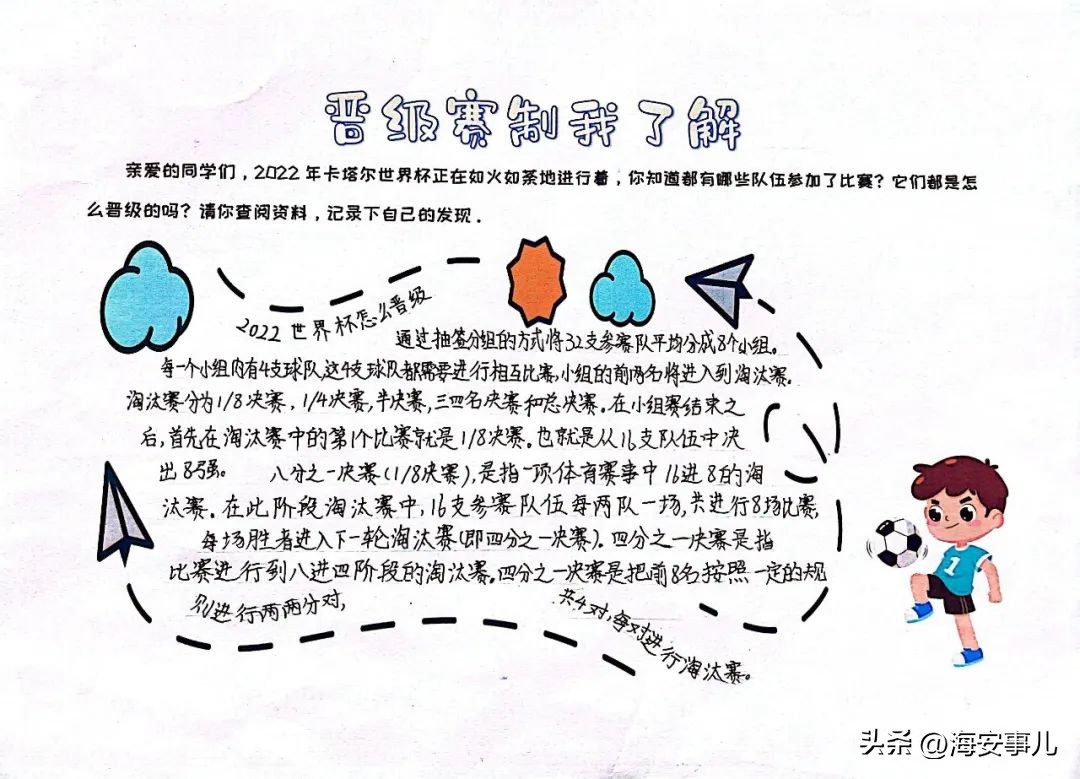 晋级赛制我了解
亲爱的同学们，2022年卡塔尔世界杯正在如火如荼地进行着，你知道都有哪些队伍参加了比赛？它们都是怎
么晋级的吗？请你查阅资料，记录下自己的发现.
2022世界杯怎么晋级
通过抽签分组的方式将32支参赛队平均分成8个小组。
每一个小组内有4支球队,这4支球队都需要进行相互比赛,小组的前两名将进入到淘汰赛.
淘汰赛分为1/8决赛，1/4决赛,半决赛,三四名决赛和总决赛.在小组赛结束之
后,首先在淘汰赛中的第1个比赛就是1/8决赛.也就是从16支队伍中决
出8强。 八分之一决赛(1/8决赛),是指一项体育赛事中16进8的淘
汰赛.在此阶段淘汰赛中,16支参赛队伍每两队一场,共进行8场比赛,
每场胜者进入下一轮淘汰赛(即四分之一决赛).四分之一决赛是指
比赛进行到八进四阶段的淘汰赛.四分之一决赛是把前8名按照一定的规
则进行两两分对,
共4对,每对进行淘汰赛。
1
头条 @海安事儿